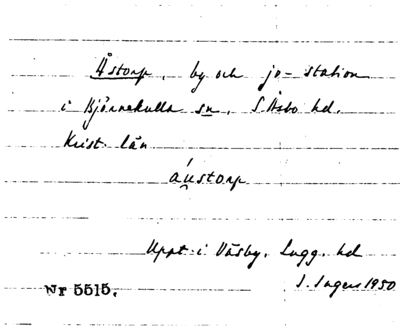 Åstorp, by och jvstation
i Björnekulla sn, S Åsbo hd.
Krist. län
áu̯storp
Uppt. i Väsby, Lugg. hd
Nr 5515.
I. Ingers 1950